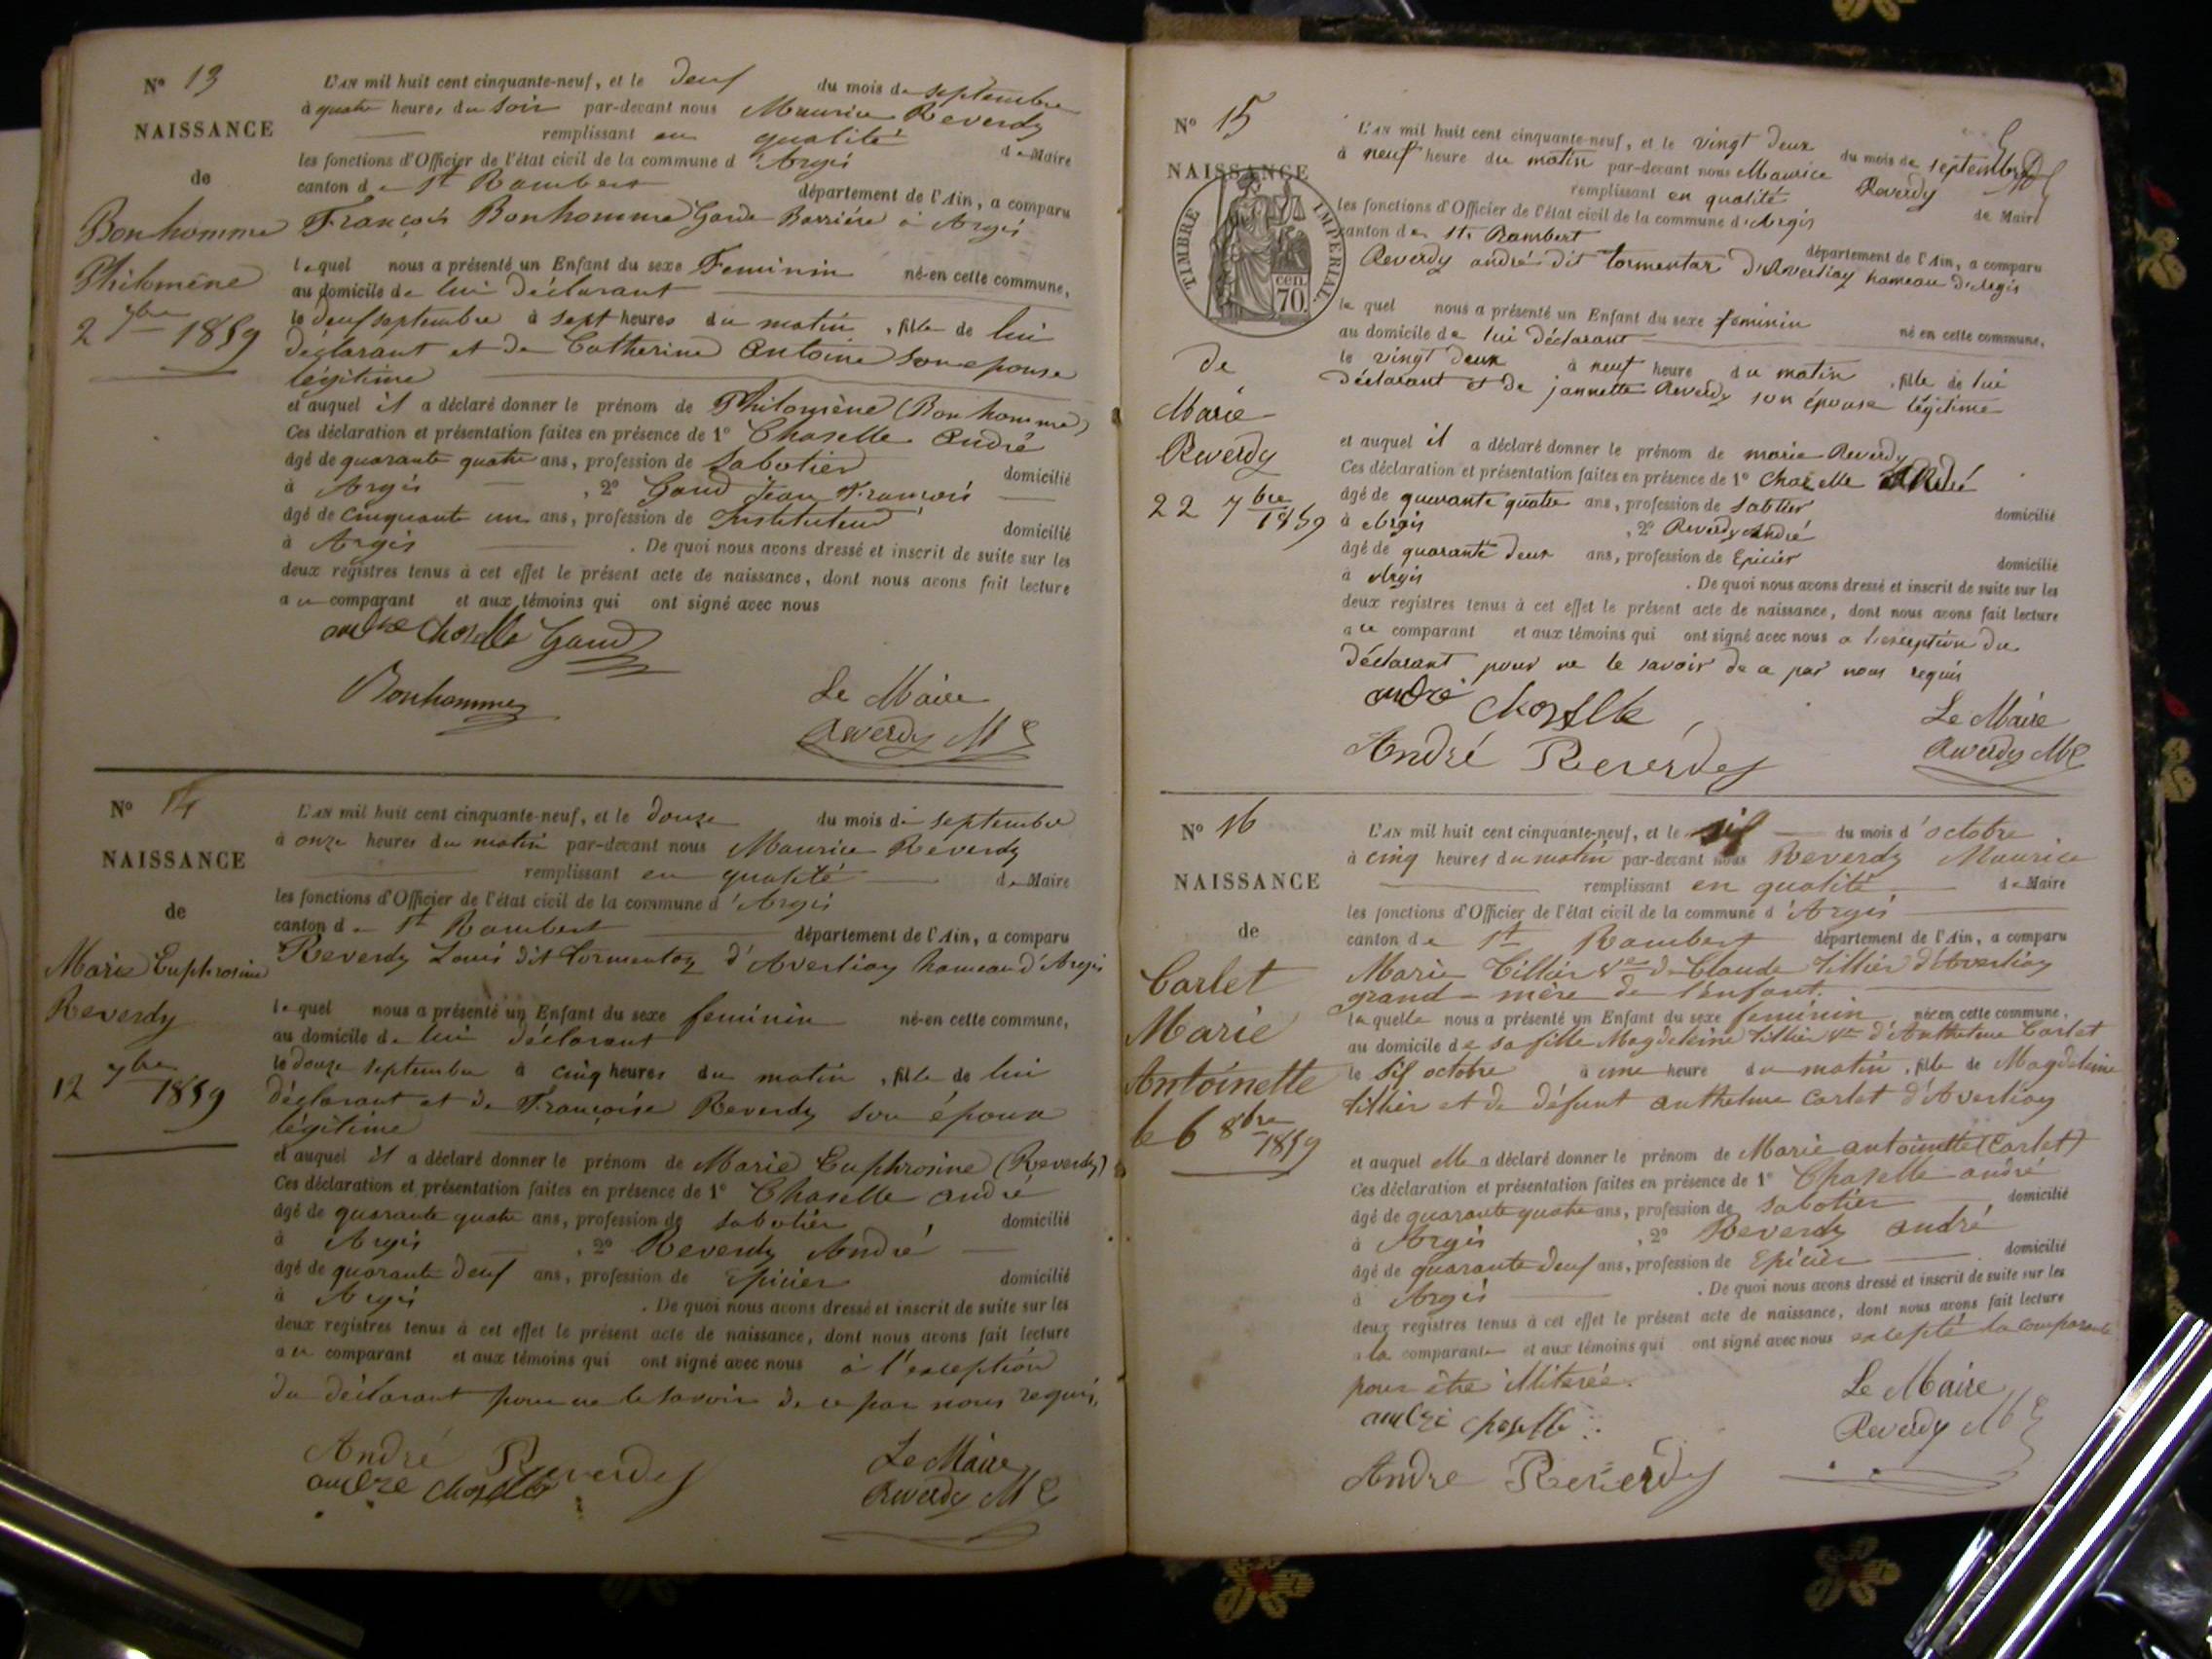 N° 13
NAISSANCE
de
Bonhomme
Philomène
2 7bre 1859
L'AN mil huit cent cinquante-neuf, et le deuf du mois de septembre
à quatre heures du soir par-devant nous Maurice Reverdy
remplissant en qualité de Maire
les fonctions d'Officier de l'état civil de la commune d'Argis
canton de St Rambert département de l'Ain, a comparu
François Bonhomme Garde Barrière à Argis
lequel nous a présenté un Enfant du sexe Feminin né en cette commune,
au domicile de lui déclarant
le deuf septembre à sept heures du matin, fille de lui
déclarant et de Catherine Antoine son epouse
légitime
et auquel il a déclaré donner le prénom de Philomène (Bonhomme)
Ces déclaration et présentation faites en présence de 1° Chaselle André
âgé de quarante quatre ans, profession de Sabotier domicilié
à Argis, 2° Gaud Jean François
âgé de cinquante un ans, profession de Instituteur domicilié
à Argis. De quoi nous avons dressé et inscrit de suite sur les
deux registres tenus à cet effet le présent acte de naissance, dont nous avons fait lecture
au comparant et aux témoins qui ont signé avec nous
andre Choselle Gaud
Bonhomme
Le Maire
Reverdy M
N° 14
NAISSANCE
de
Marie Euphrosine
Reverdy
12 7bre 1859
L'AN mil huit cent cinquante-neuf, et le douze du mois de septembre
à onze heures du matin par-devant nous Maurice Reverdy
remplissant en qualité de Maire
les fonctions d'Officier de l'état civil de la commune d'Argis
canton de St Rambert département de l'Ain, a comparu
Reverdy Louis dit Tormentoz d'Averliaz hameau d'Argis
lequel nous a présenté un Enfant du sexe feminin né en cette commune,
au domicile de lui déclarant
le douze septembre à cinq heures du matin, fille de lui
déclarant et de Françoise Reverdy son épouse
légitime
et auquel il a déclaré donner le prénom de Marie Euphrosine (Reverdy)
Ces déclaration et présentation faites en présence de 1° Chaselle andré
âgé de quarante quatre ans, profession de sabotier domicilié
à Argis, 2° Reverdy André
âgé de quarante deuf ans, profession de Epicier domicilié
à Argis. De quoi nous avons dressé et inscrit de suite sur les
deux registres tenus à cet effet le présent acte de naissance, dont nous avons fait lecture
au comparant et aux témoins qui ont signé avec nous à l'exception
du déclarant pour ne le savoir de ce par nous requis,
André Reverdy
andre choselle
Le Maire
Reverdy M
N° 15
NAISSANCE
TIMBRE IMPERIAL
70 cen.
de
Marie
Reverdy
22 7bre 1859
L'AN mil huit cent cinquante-neuf, et le vingt deux du mois de septembre
à neuf heure du matin par-devant nous Maurice Reverdy
remplissant en qualité de Maire
les fonctions d'Officier de l'état civil de la commune d'Argis
canton de St Rambert département de l'Ain, a comparu
Reverdy andré dit tormentaz d'Averliaz hameau d'Argis
lequel nous a présenté un Enfant du sexe feminin né en cette commune,
au domicile de lui déclarant
le vingt deux à neuf heure du matin, fille de lui
déclarant et de jannette Reverdy son épouse légitime
et auquel il a déclaré donner le prénom de marie Reverdy
Ces déclaration et présentation faites en présence de 1° Chaselle André
âgé de quarante quatre ans, profession de sabtier domicilié
à Argis, 2° Reverdy André
âgé de quarante deux ans, profession de Epicier domicilié
à Argis. De quoi nous avons dressé et inscrit de suite sur les
deux registres tenus à cet effet le présent acte de naissance, dont nous avons fait lecture
au comparant et aux témoins qui ont signé avec nous a l'exception du
déclarant pour ne le savoir de ce par nous requis
andré Choselle
André Reverdy
Le Maire
Reverdy M
N° 16
NAISSANCE
de
Carlet
Marie
Antoinette
le 6 8bre 1859
L'AN mil huit cent cinquante-neuf, et le sif du mois d'octobre
à cinq heures du matin par-devant nous Reverdy Maurice
remplissant en qualité de Maire
les fonctions d'Officier de l'état civil de la commune d'Argis
canton de St Rambert département de l'Ain, a comparu
Marie Tillier Ve de Claude Tillier d'Averliaz
grand-mère de l'enfant.
laquelle nous a présenté un Enfant du sexe feminin né en cette commune,
au domicile de sa fille Magdeleine tillier Ve d'Anthelme Carlet
le sif octobre à une heure du matin, fille de Magdeleine
tillier et de défunt anthelme Carlet d'Averliaz
et auquel elle a déclaré donner le prénom de Marie antoinette (Carlet)
Ces déclaration et présentation faites en présence de 1° Chaselle andré
âgé de quarante quatre ans, profession de sabotier domicilié
à Argis, 2° Reverdy andré
âgé de quarante deuf ans, profession de Epicier domicilié
à Argis. De quoi nous avons dressé et inscrit de suite sur les
deux registres tenus à cet effet le présent acte de naissance, dont nous avons fait lecture
a la comparante et aux témoins qui ont signé avec nous excepté la comparante
pour être illiterée.
andré choselle
Andre Reverdy
Le Maire
Reverdy M